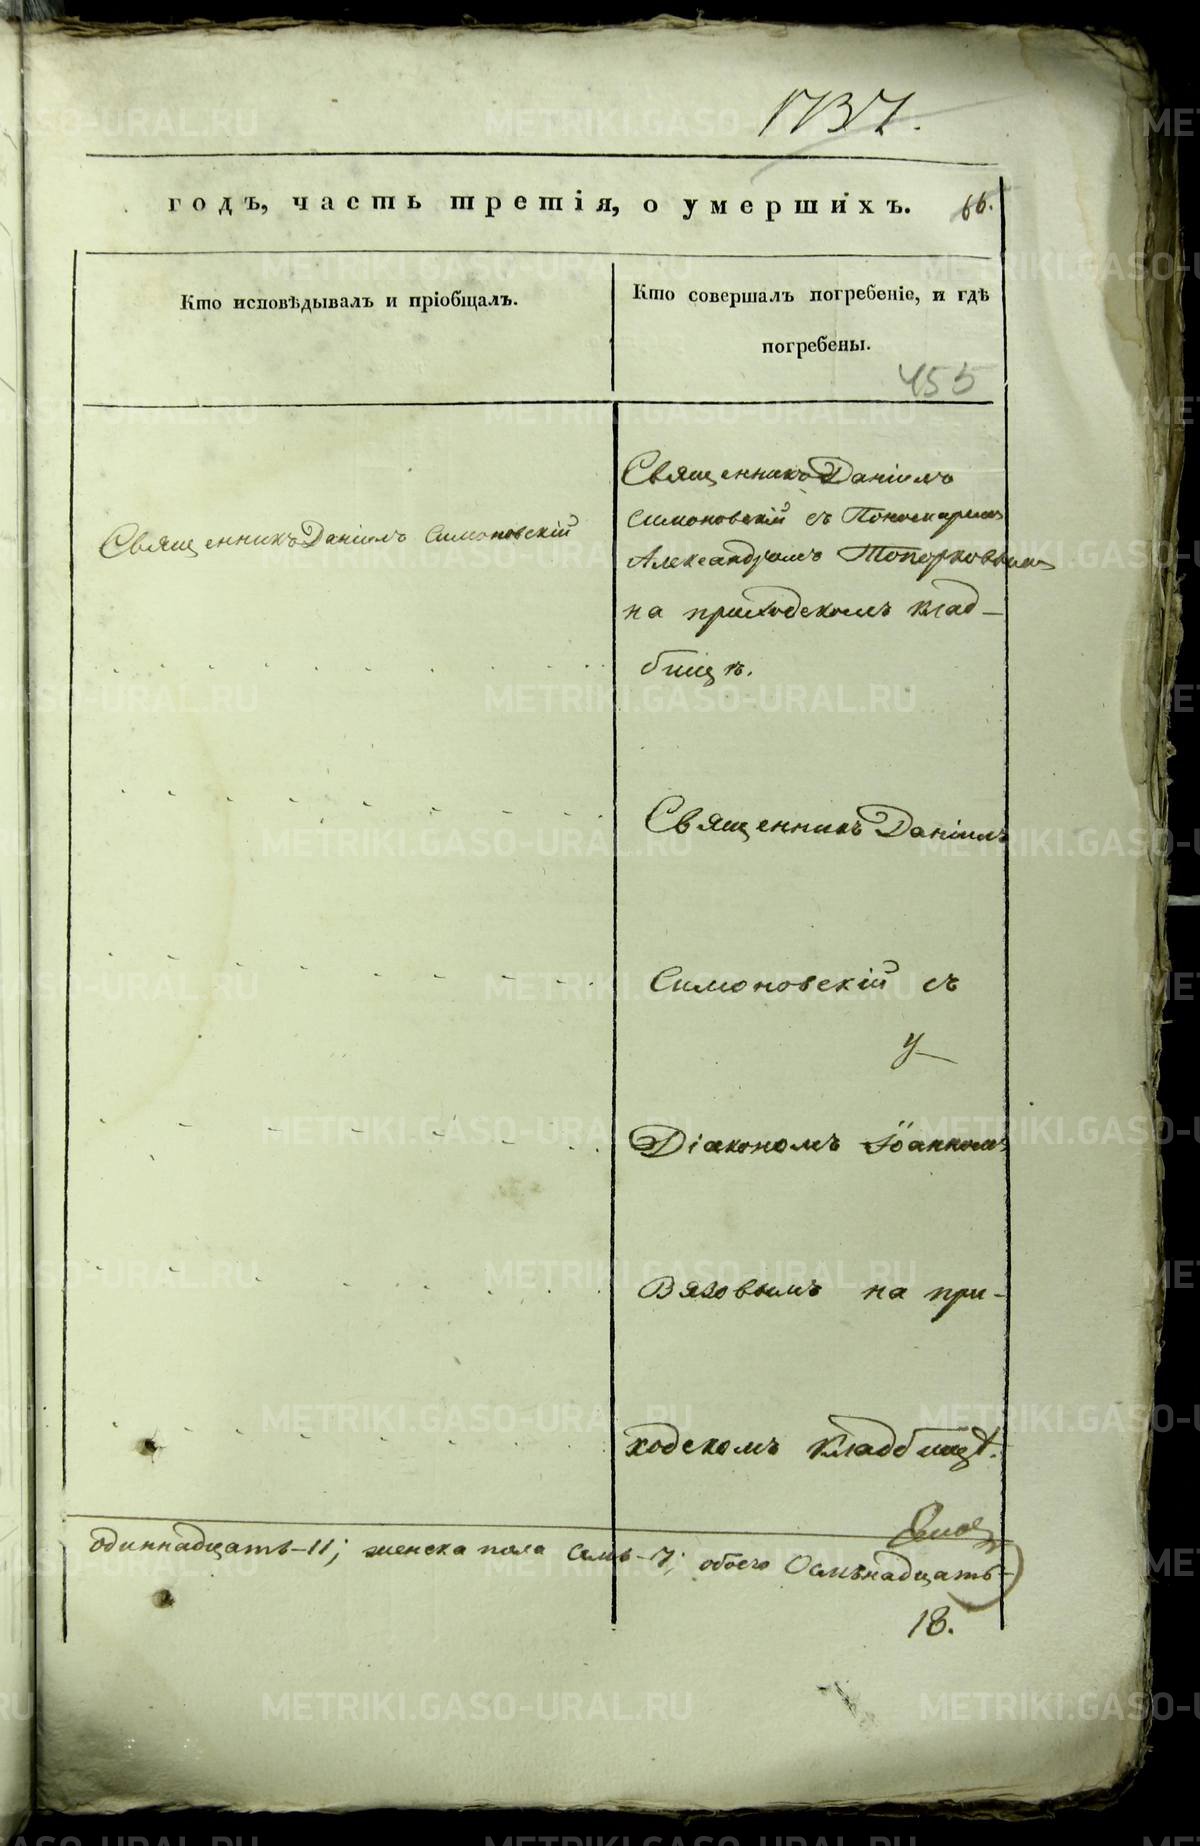 1737.
годъ, часть третія, о умершихъ. 66.
Кто исповѣдывалъ и пріобщалъ.
Кто совершалъ погребеніе, и гдѣ
погребены.
455
Священникъ Даніилъ Симоновскій
Священникъ Даніилъ
Симоновскій съ Пономаремъ
Александромъ Топорковымъ
на приходскомъ клад-
бищѣ.
Священникъ Даніилъ
Симоновскій съ
Діакономъ Іоанномъ
Вязовымъ на при-
ходскомъ кладбищѣ.
одиннадцать-11; женска пола семь-7; обоего Осмьнадцать-
18.
METRIKI.GASO-URAL.RU